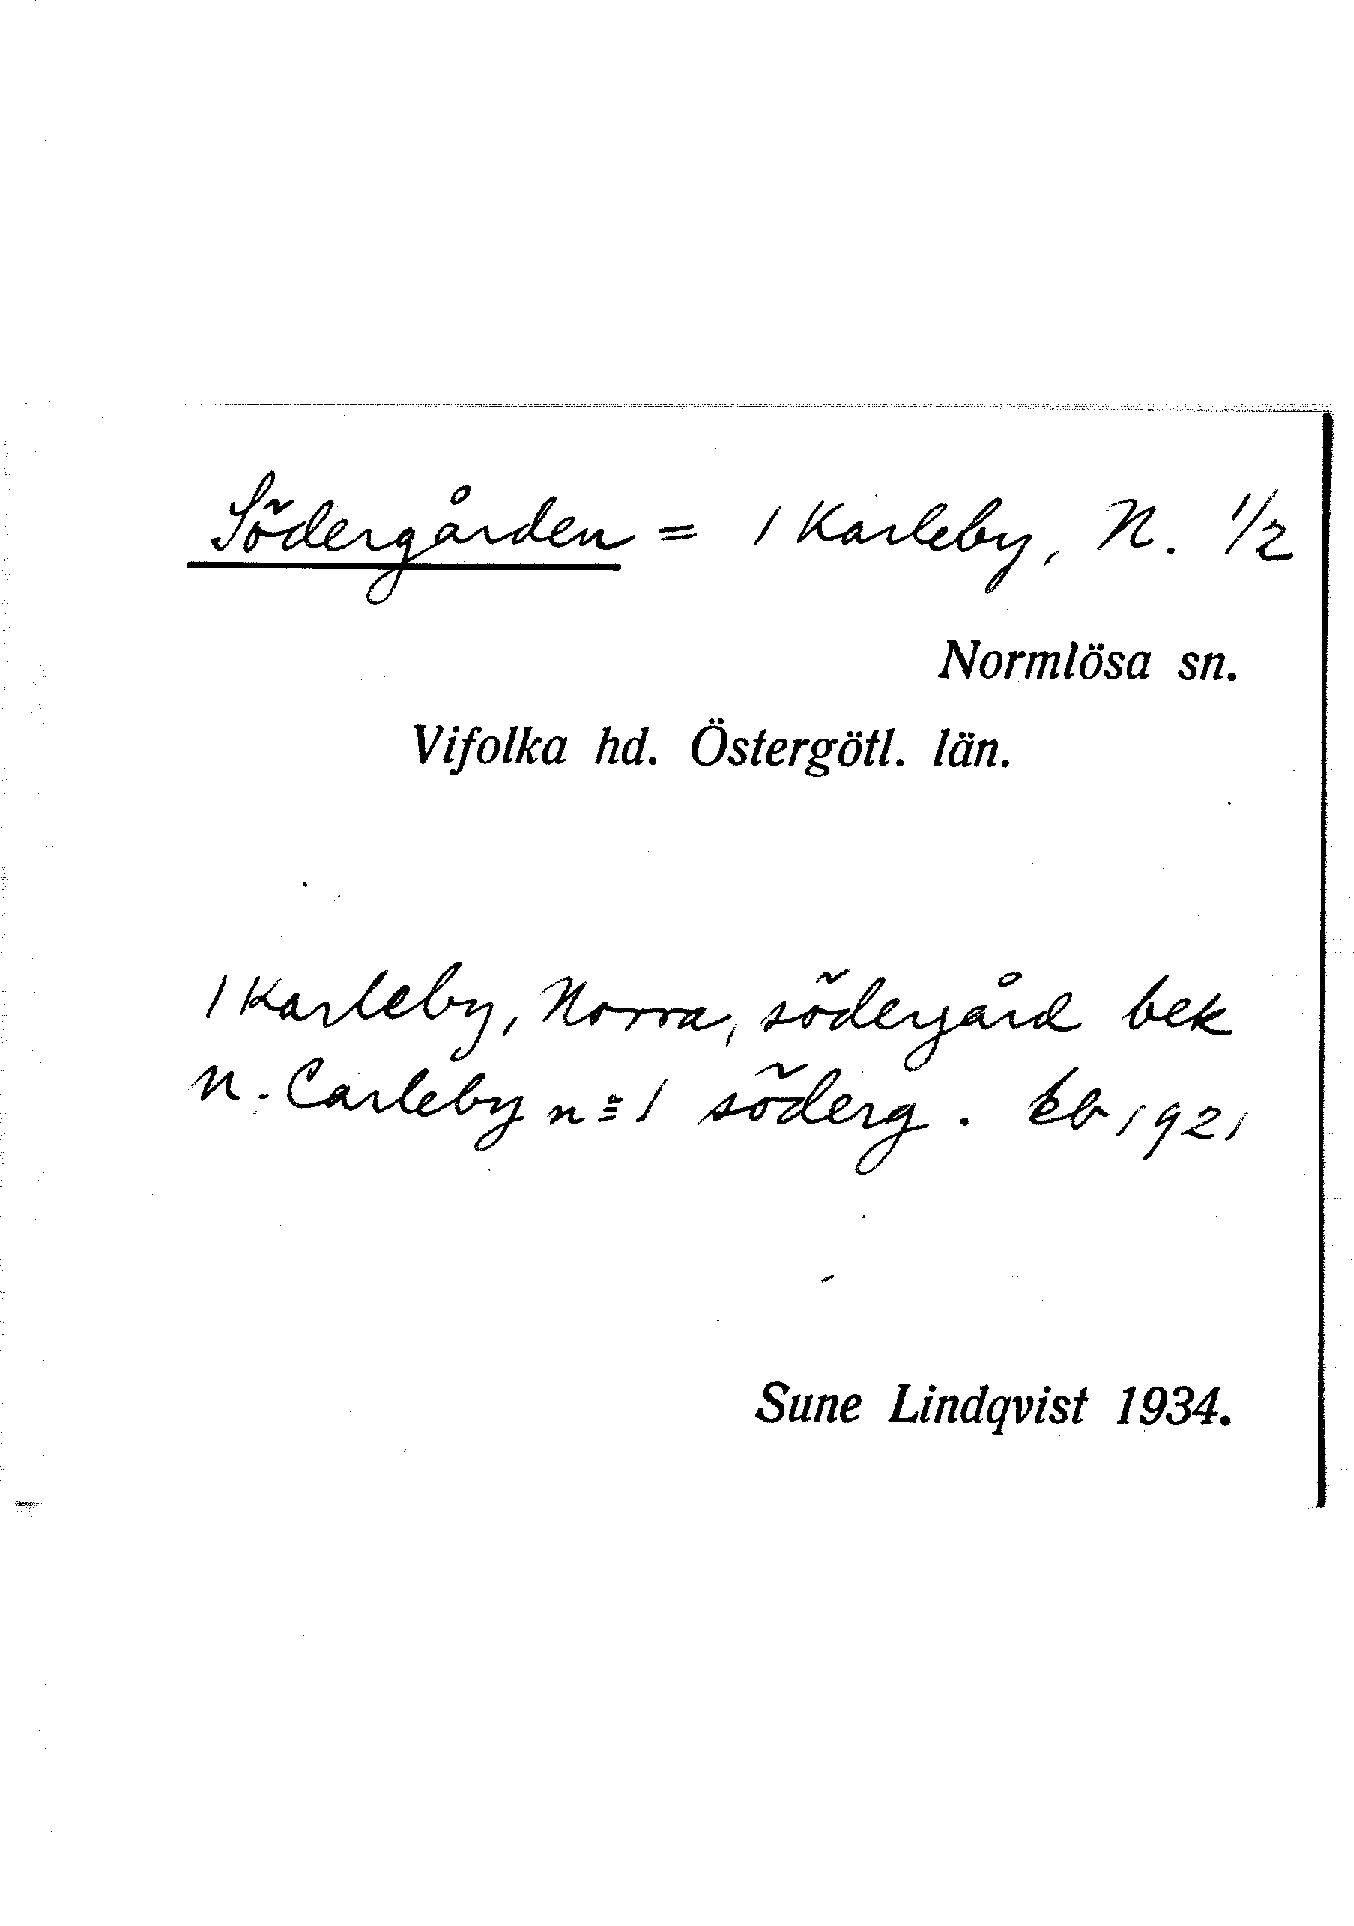 Södergården = 1 Karleby, N. 1/2
Normlösa sn.
Vifolka hd. Östergötl. län.
1 Karleby, Norra, södergård bek
N. Carleby nº 1 söderg. kb 1921
Sune Lindqvist 1934.